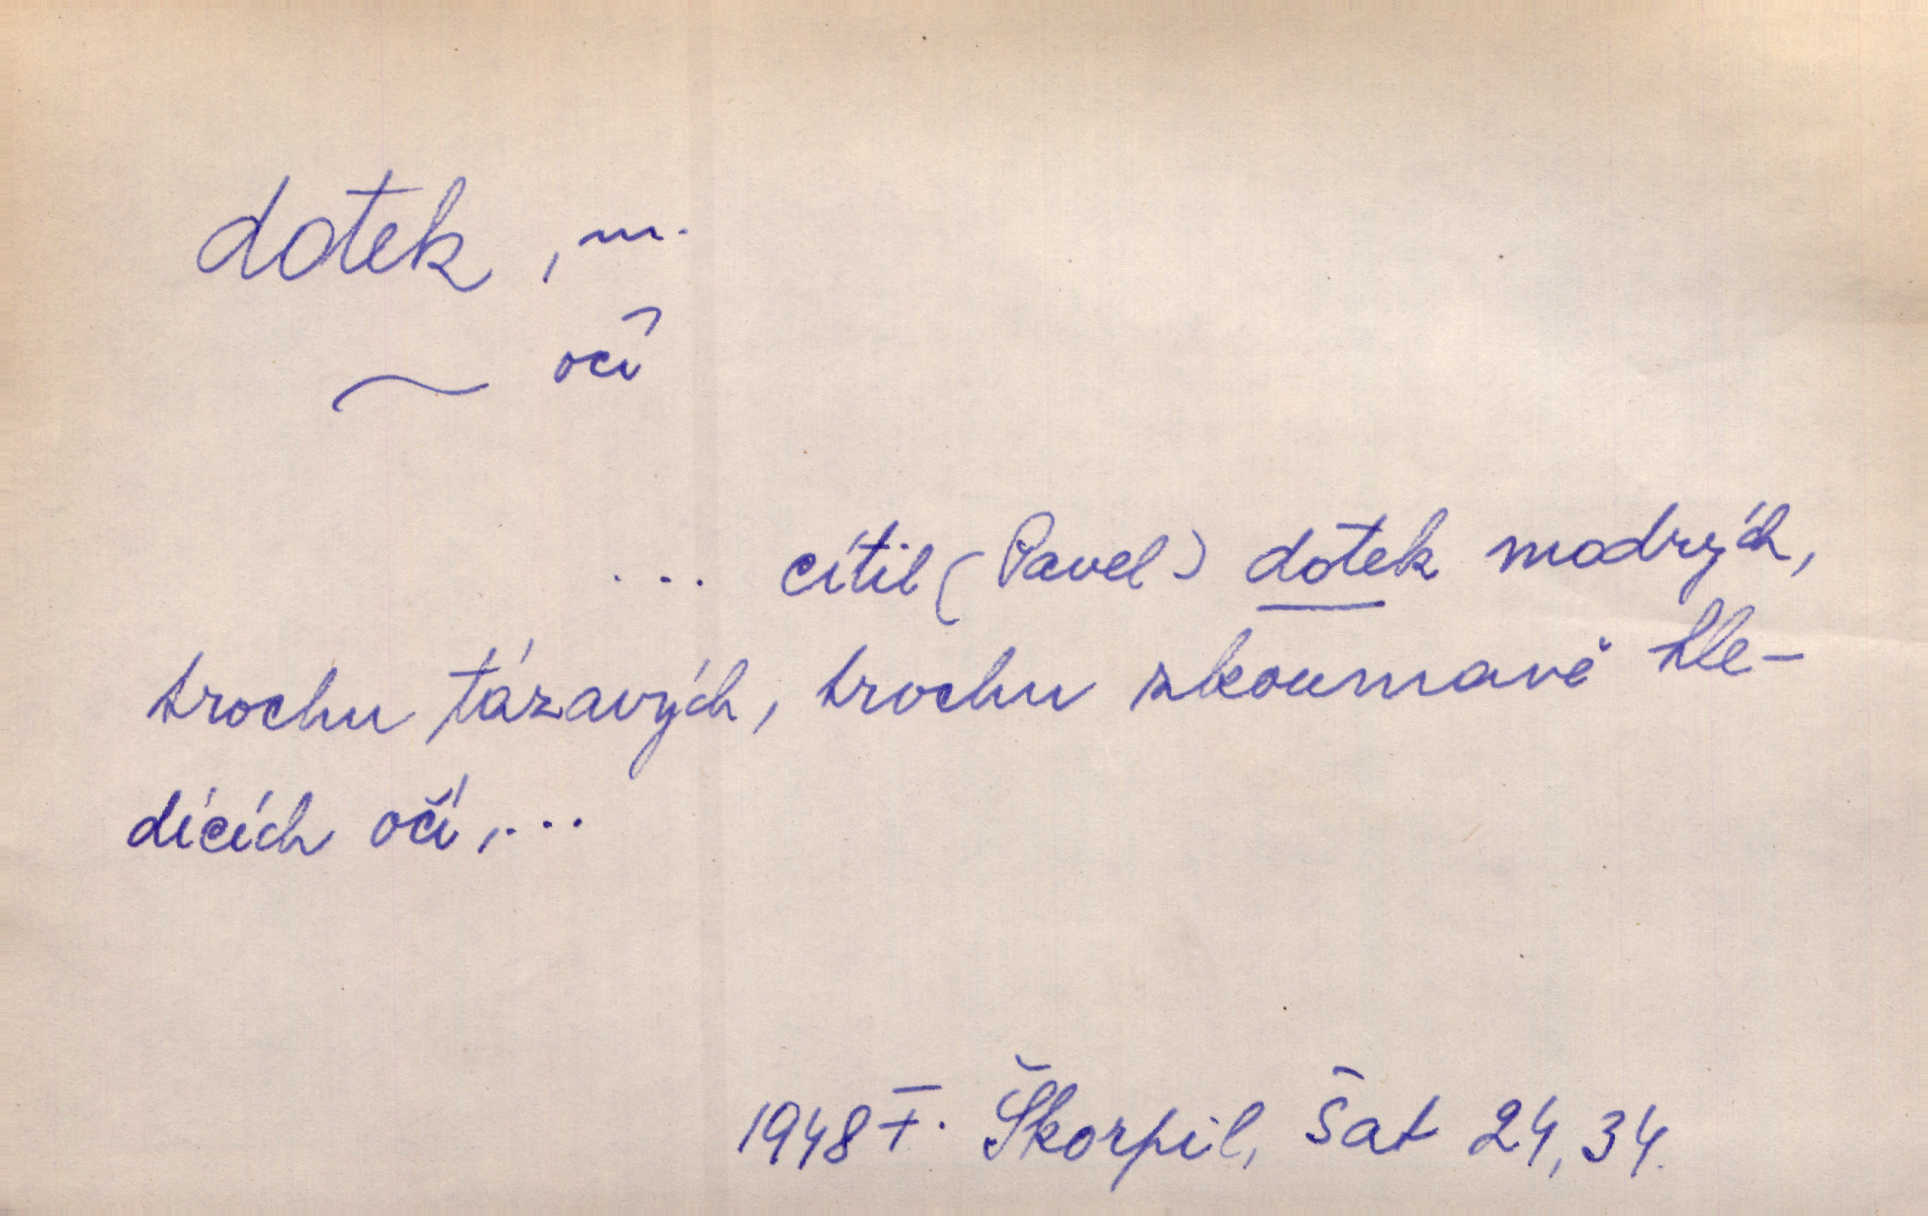 dotek, m.
~ očí
... cítil (Pavel) dotek modrých,
trochu tázavých, trochu zkoumavě hle-
dících očí,...
1948 F. Škorpil, Šat 24, 34.